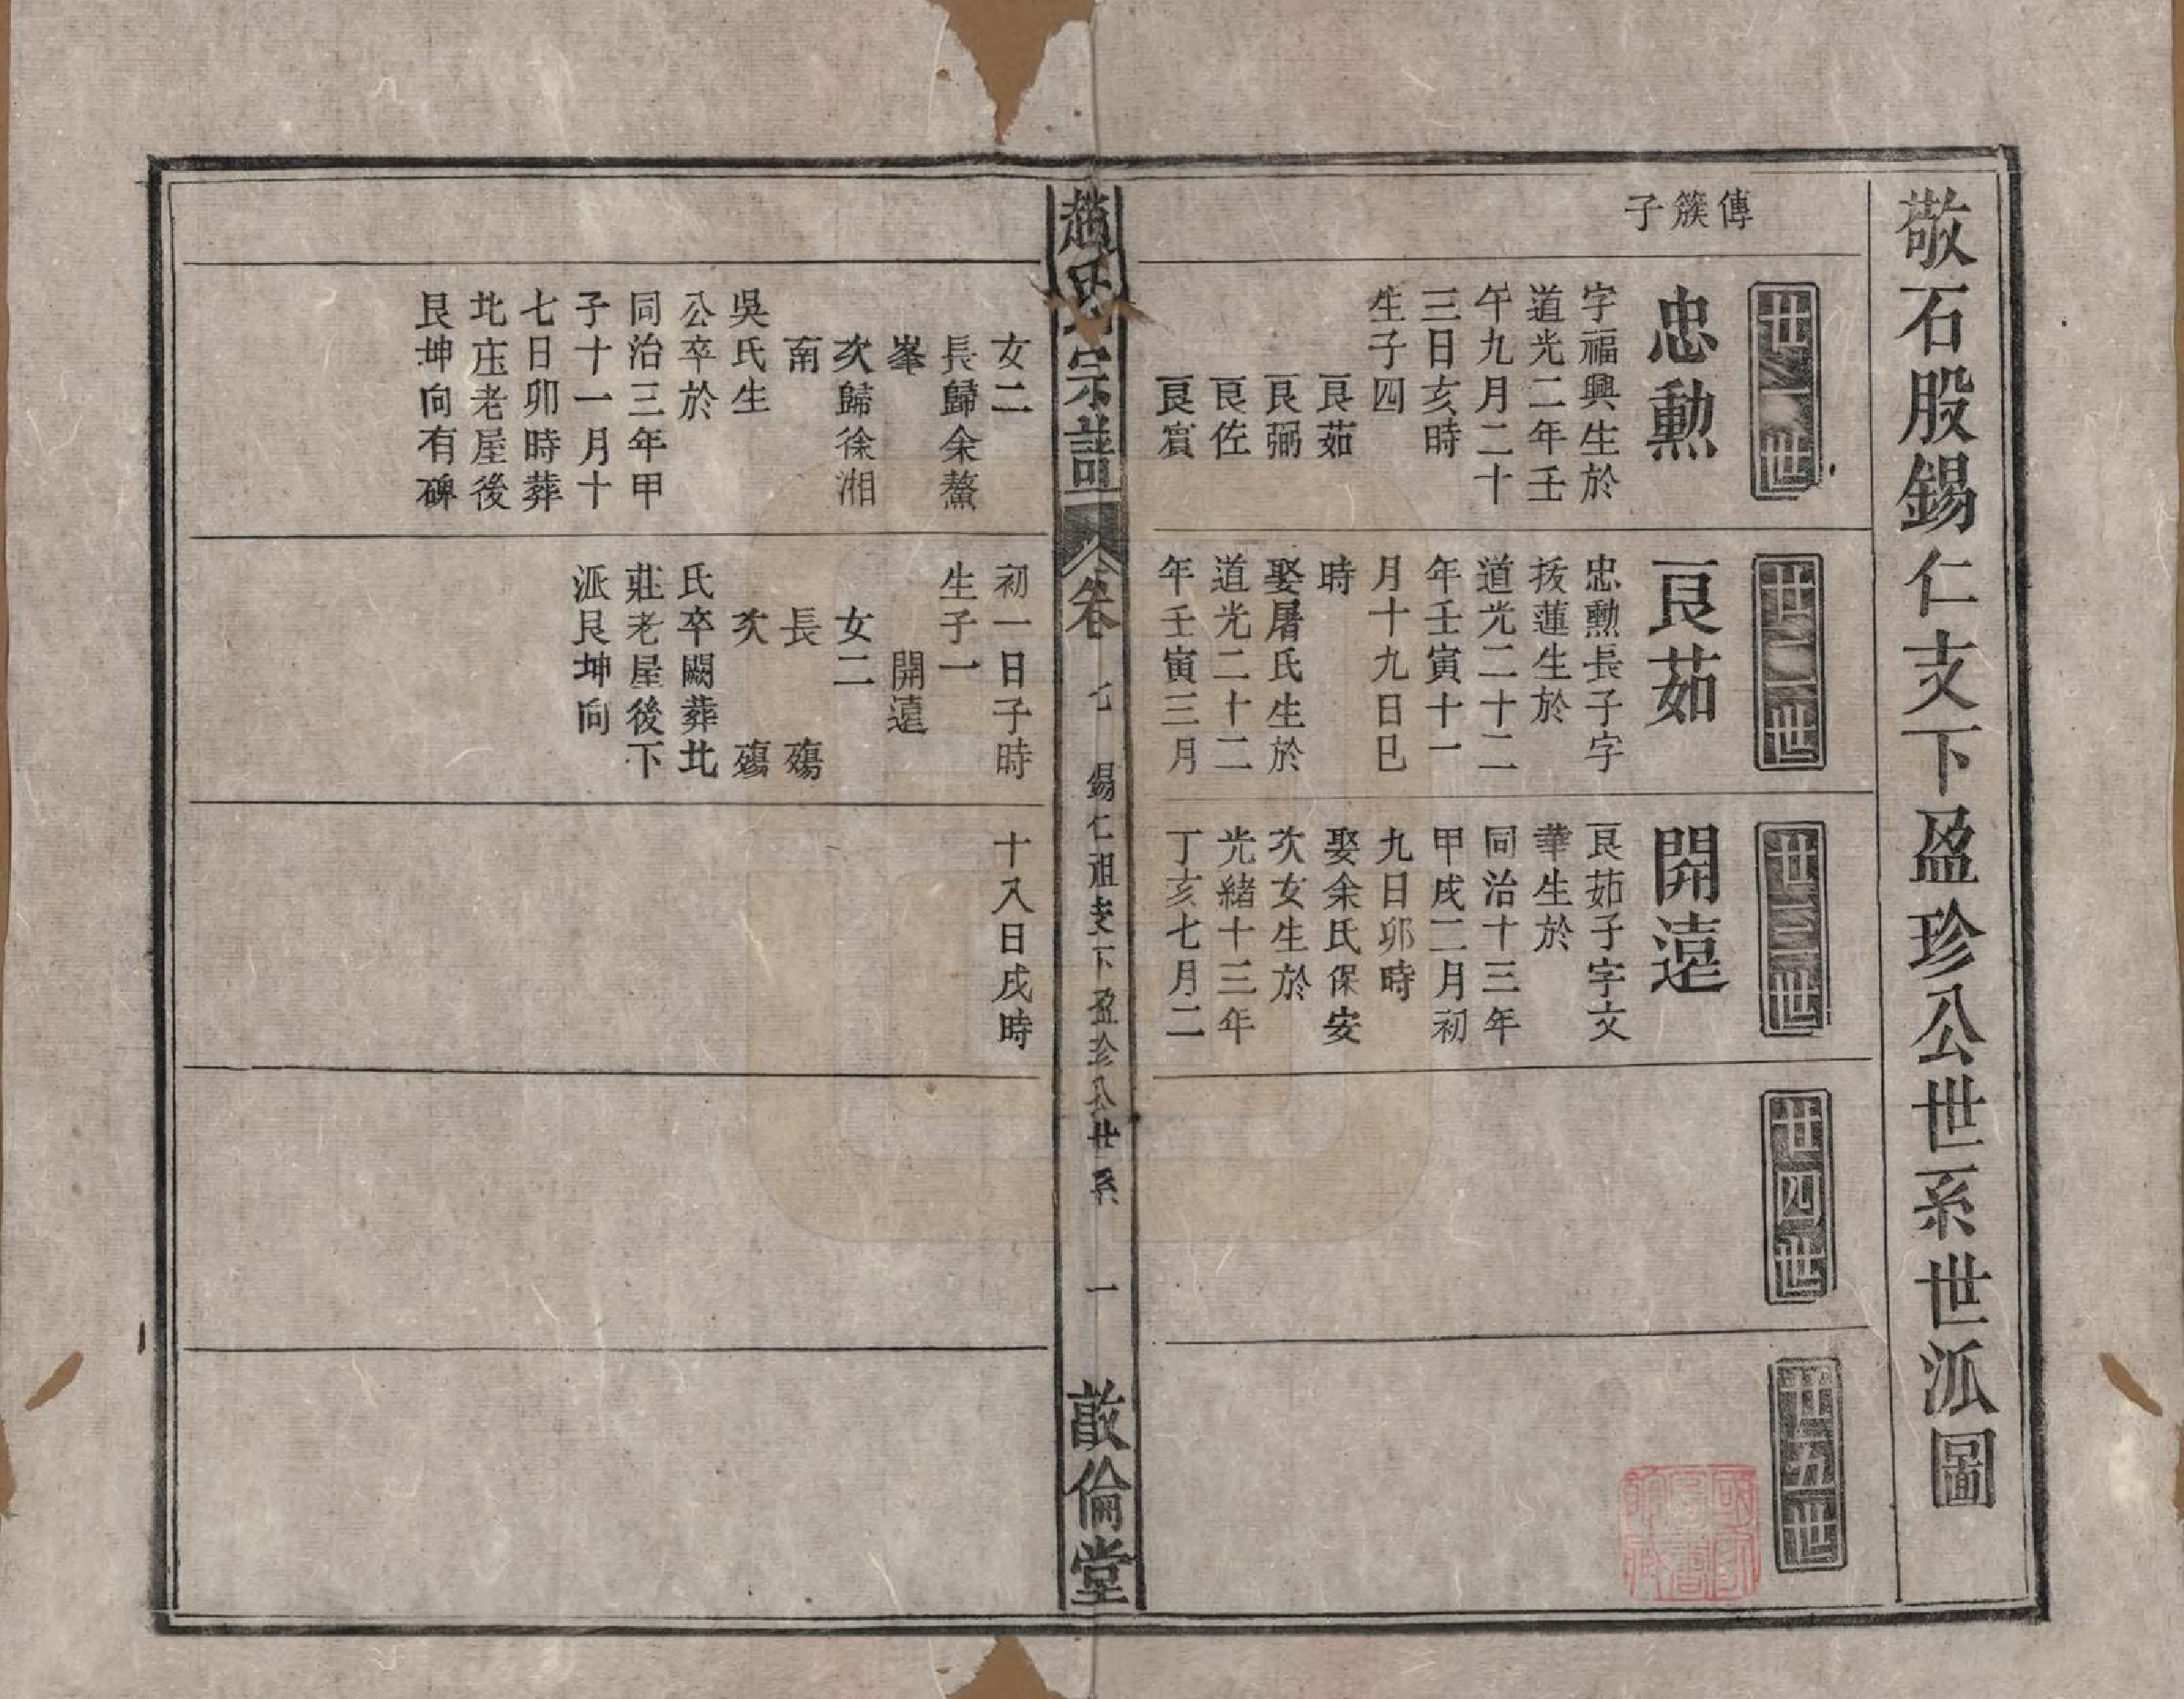 敬石股錫仁支下盈珍公世系世派圖
傳簇子
世一世
忠勲
字福興生於
道光二年壬
午九月二十
三日亥時
生子四
艮茹
艮弼
艮佐
艮賔
世二世
艮茹
忠勲長子字
拔蓮生於
道光二十二
年壬寅十一
月十九日巳
時
娶屠氏生於
道光二十二
年壬寅三月
世三世
開遠
艮茹子字文
華生於
同治十三年
甲戌二月初
九日卯時
娶余氏保安
次女生於
光緒十三年
丁亥七月二
世四世
世五世
趙氏宗譜
卷七
錫仁祖支下盈珍公世系
一
敦倫堂
女二
長歸余鰲
峯
次歸徐湘
南
吳氏生
公卒於
同治三年甲
子十一月十
七日卯時葬
北庄老屋後
艮坤向有碑
初一日子時
生子一
開遠
女二
長 殤
次 殤
氏卒闕葬北
莊老屋後下
派艮坤向
十八日戌時